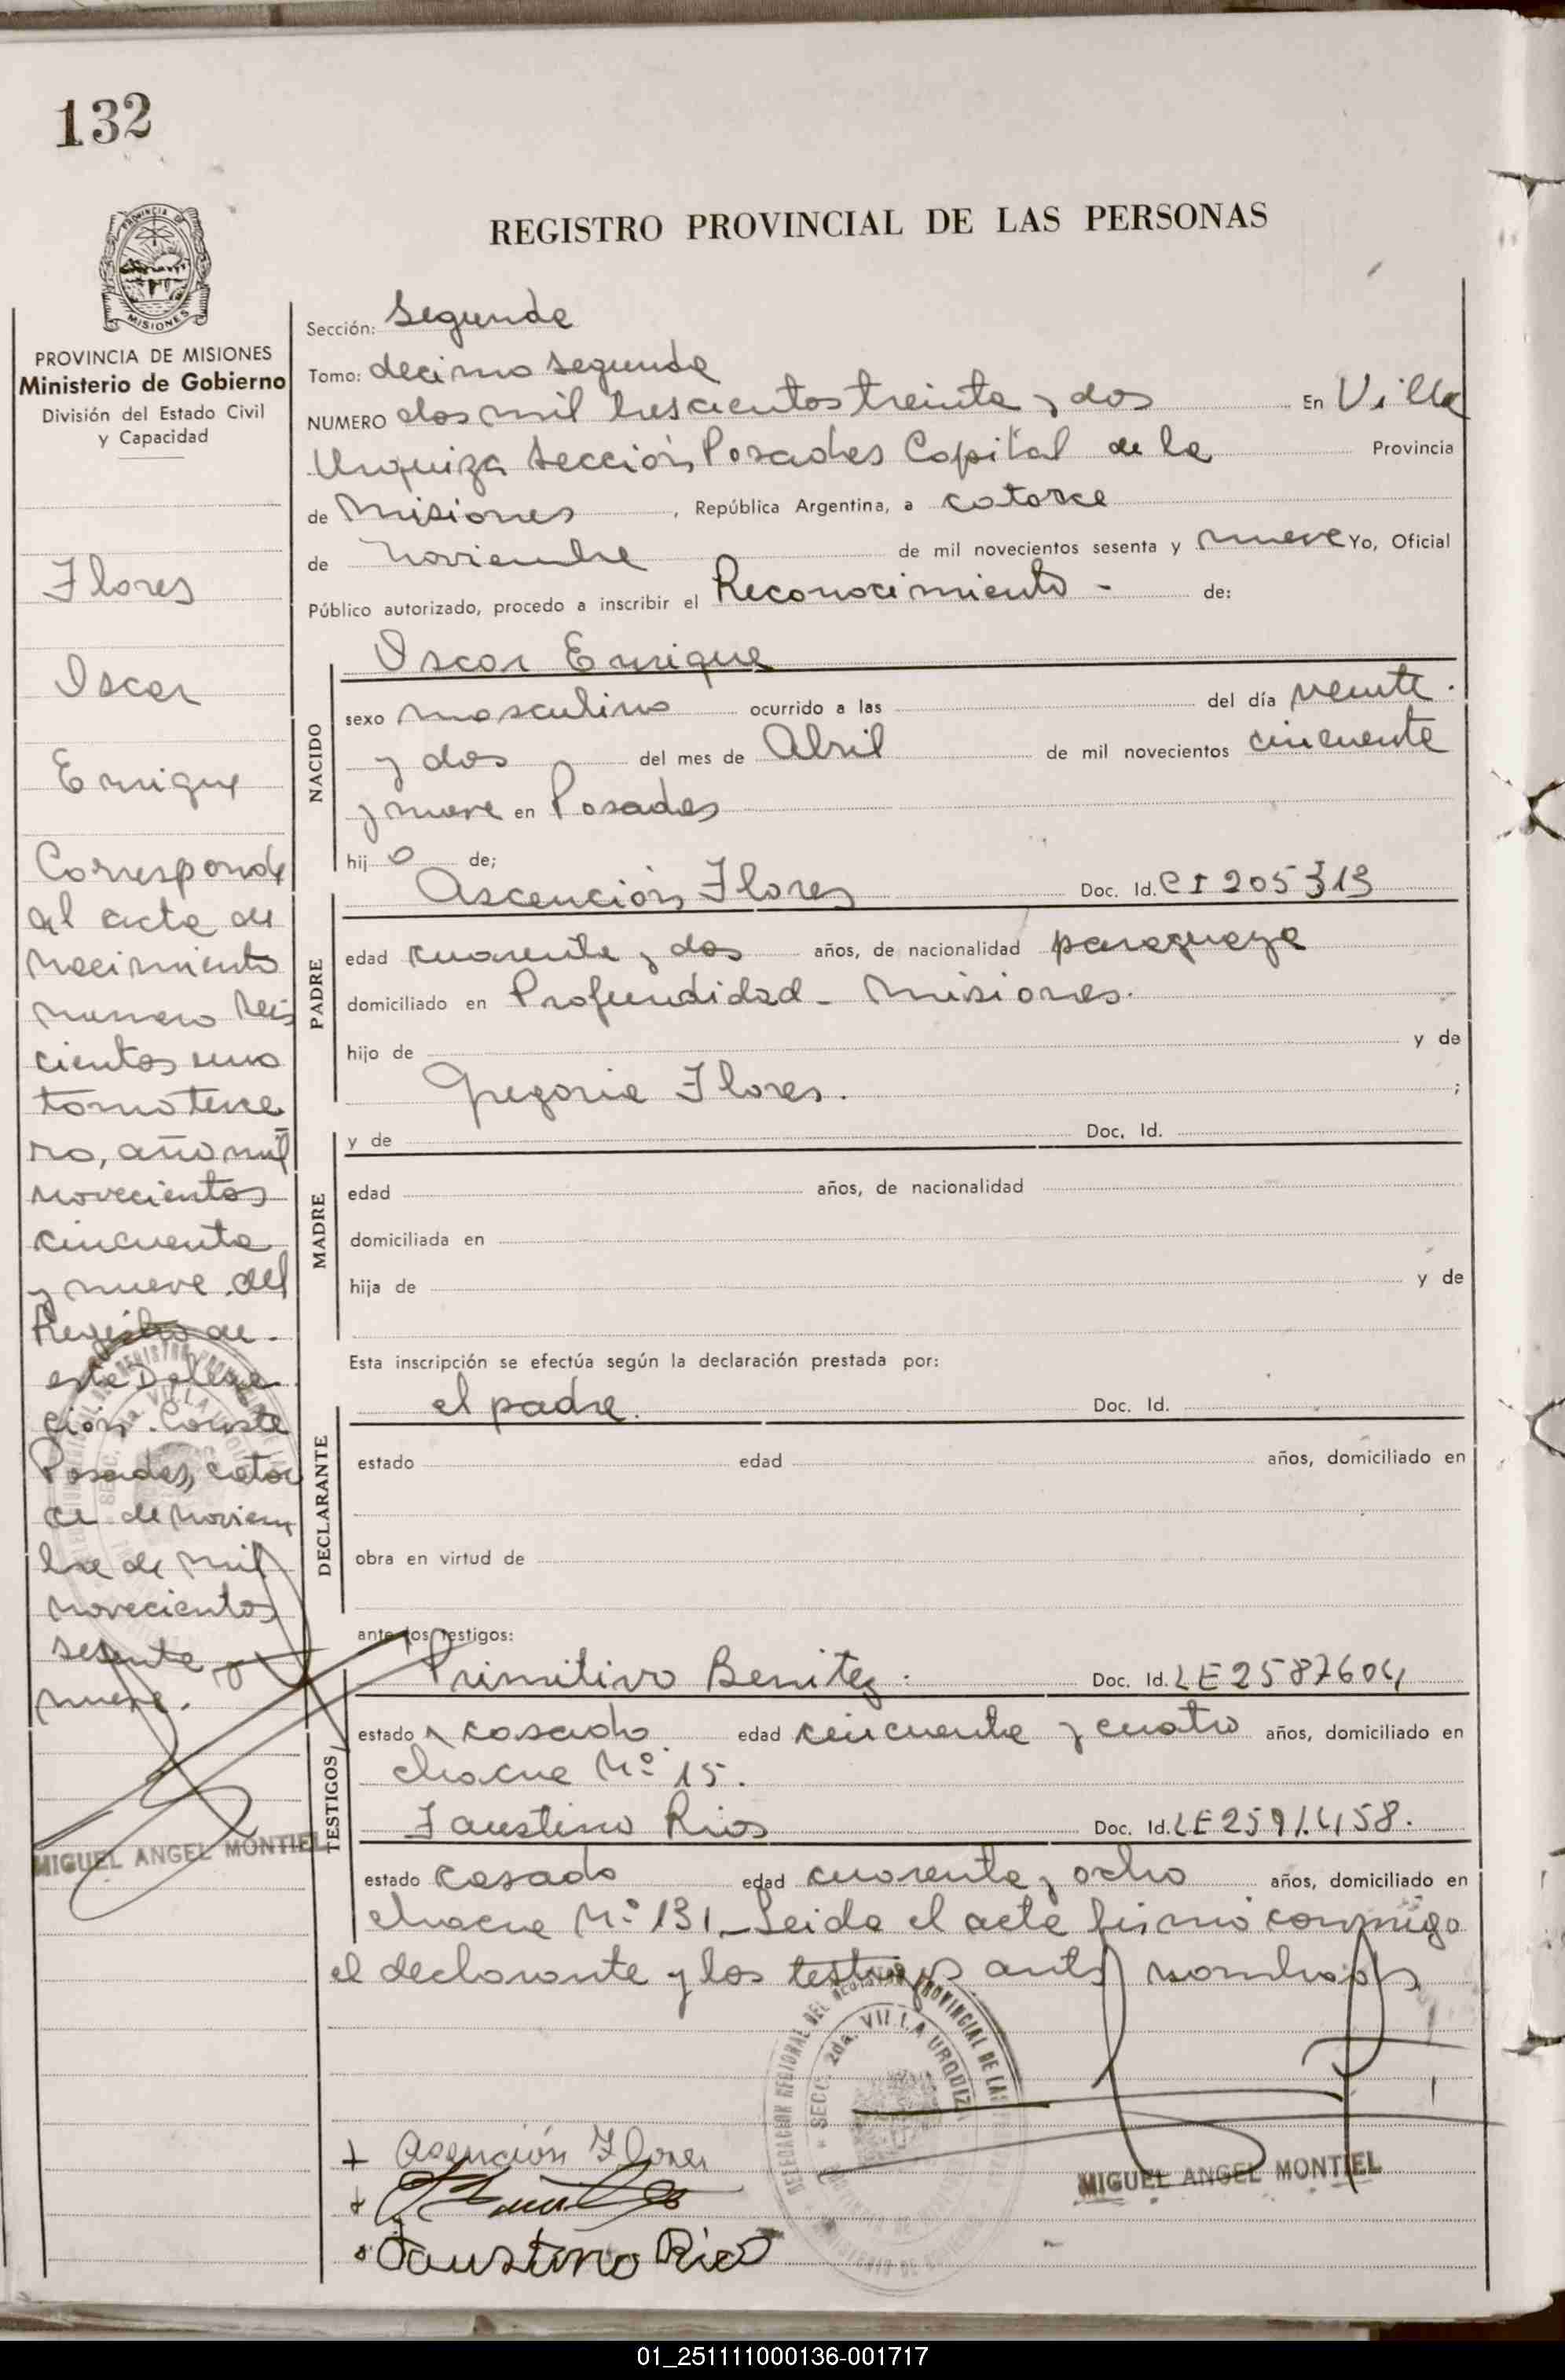 132
REGISTRO PROVINCIAL DE LAS PERSONAS
PROVINCIA DE MISIONES
Ministerio de Gobierno
División del Estado Civil
y Capacidad
Flores
Oscar
Enrique
Corresponde
al acta de
nacimiento
numero seis
cientos uno
tomo terce
ro, año mil
novecientos
cincuenta
y nueve del
Registro de
esta Delega
ción. Conste
Posadas, cator
ce de noviem
bre de mil
novecientos
sesenta y
nueve.
MIGUEL ANGEL MONTIEL
Sección: Segunda
Tomo: decimo segundo
NUMERO dos mil trescientos treinta y dos En Villa
Urquiza Sección Posadas Capital de la Provincia
de Misiones, República Argentina, a catorce
de noviembre de mil novecientos sesenta y nueve Yo, Oficial
Público autorizado, procedo a inscribir el Reconocimiento - de:
NACIDO
Oscar Enrique
sexo masculino ocurrido a las del día veinte
y dos del mes de Abril de mil novecientos cincuenta
y nueve en Posadas
hijo de;
PADRE
Ascención Flores Doc. Id. CI 205313
edad cuarenta y dos años, de nacionalidad paraguaya
domiciliado en Profundidad - Misiones.
hijo de y de
Gregoria Flores. ;
MADRE
y de Doc. Id.
edad años, de nacionalidad
domiciliada en
hija de y de
DECLARANTE
Esta inscripción se efectúa según la declaración prestada por:
el padre. Doc. Id.
estado edad años, domiciliado en
obra en virtud de
TESTIGOS
ante los testigos:
Primitivo Benitez. Doc. Id. LE 2587604
estado casado edad cincuenta y cuatro años, domiciliado en
chacra Nº 15.
Faustino Rios Doc. Id. LE
estado casado edad cuarenta y ocho años, domiciliado en
chacra Nº 131_ Leida el acta firmó conmigo
el declarante y los testigos ants nombrados
DELEGACION REGIONAL DEL REGISTRO PROVINCIAL DE LAS
SECC. 2da. VILLA URQUIZA
Asención Flores
Faustino Rios
MIGUEL ANGEL MONTIEL
01_251111000136-001717